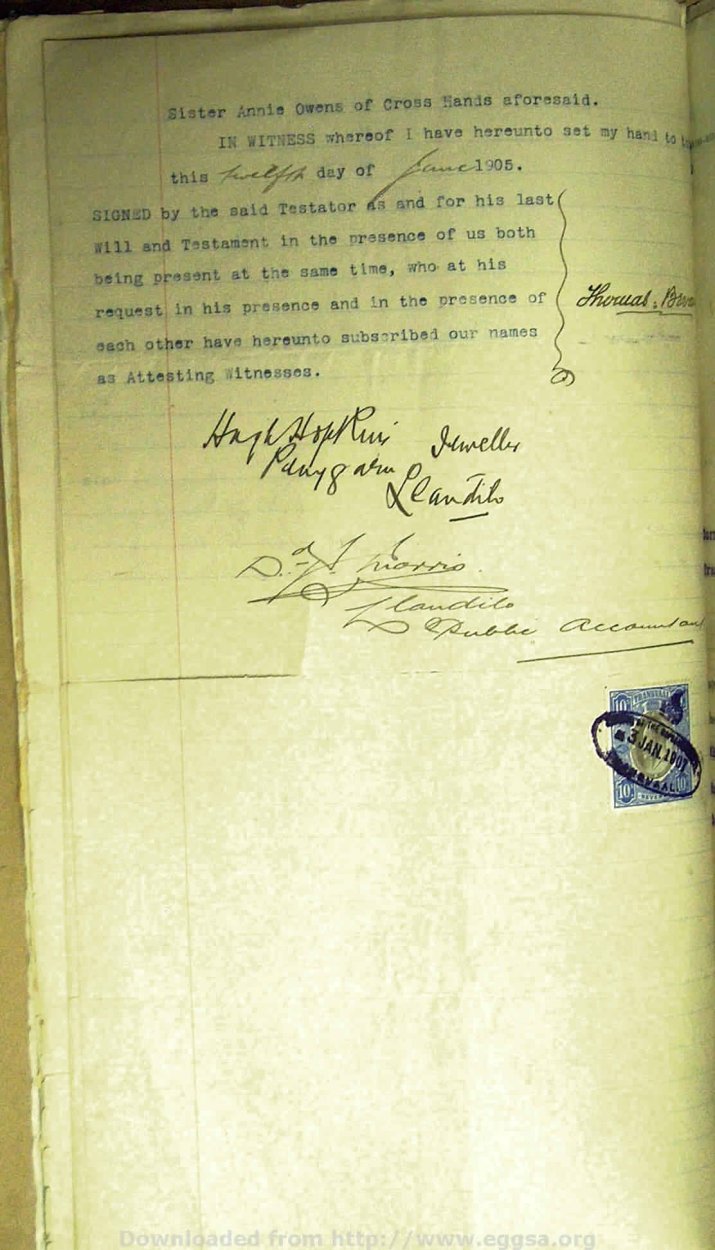 Sister Annie Owens of Cross Hands aforesaid.
IN WITNESS whereof I have hereunto set my hand to
this twelfth day of June 1905.
SIGNED by the said Testator as and for his last
Will and Testament in the presence of us both
being present at the same time, who at his
request in his presence and in the presence of
Thomas
each other have hereunto subscribed our names
as Attesting Witnesses.
Hugh Hopkins Jeweller
Llandilo
Dd. J. Morris
Llandilo
Public Accountant
TRANSVAAL
3 JAN. 1907
10 10
Downloaded from http://www.eggsa.org